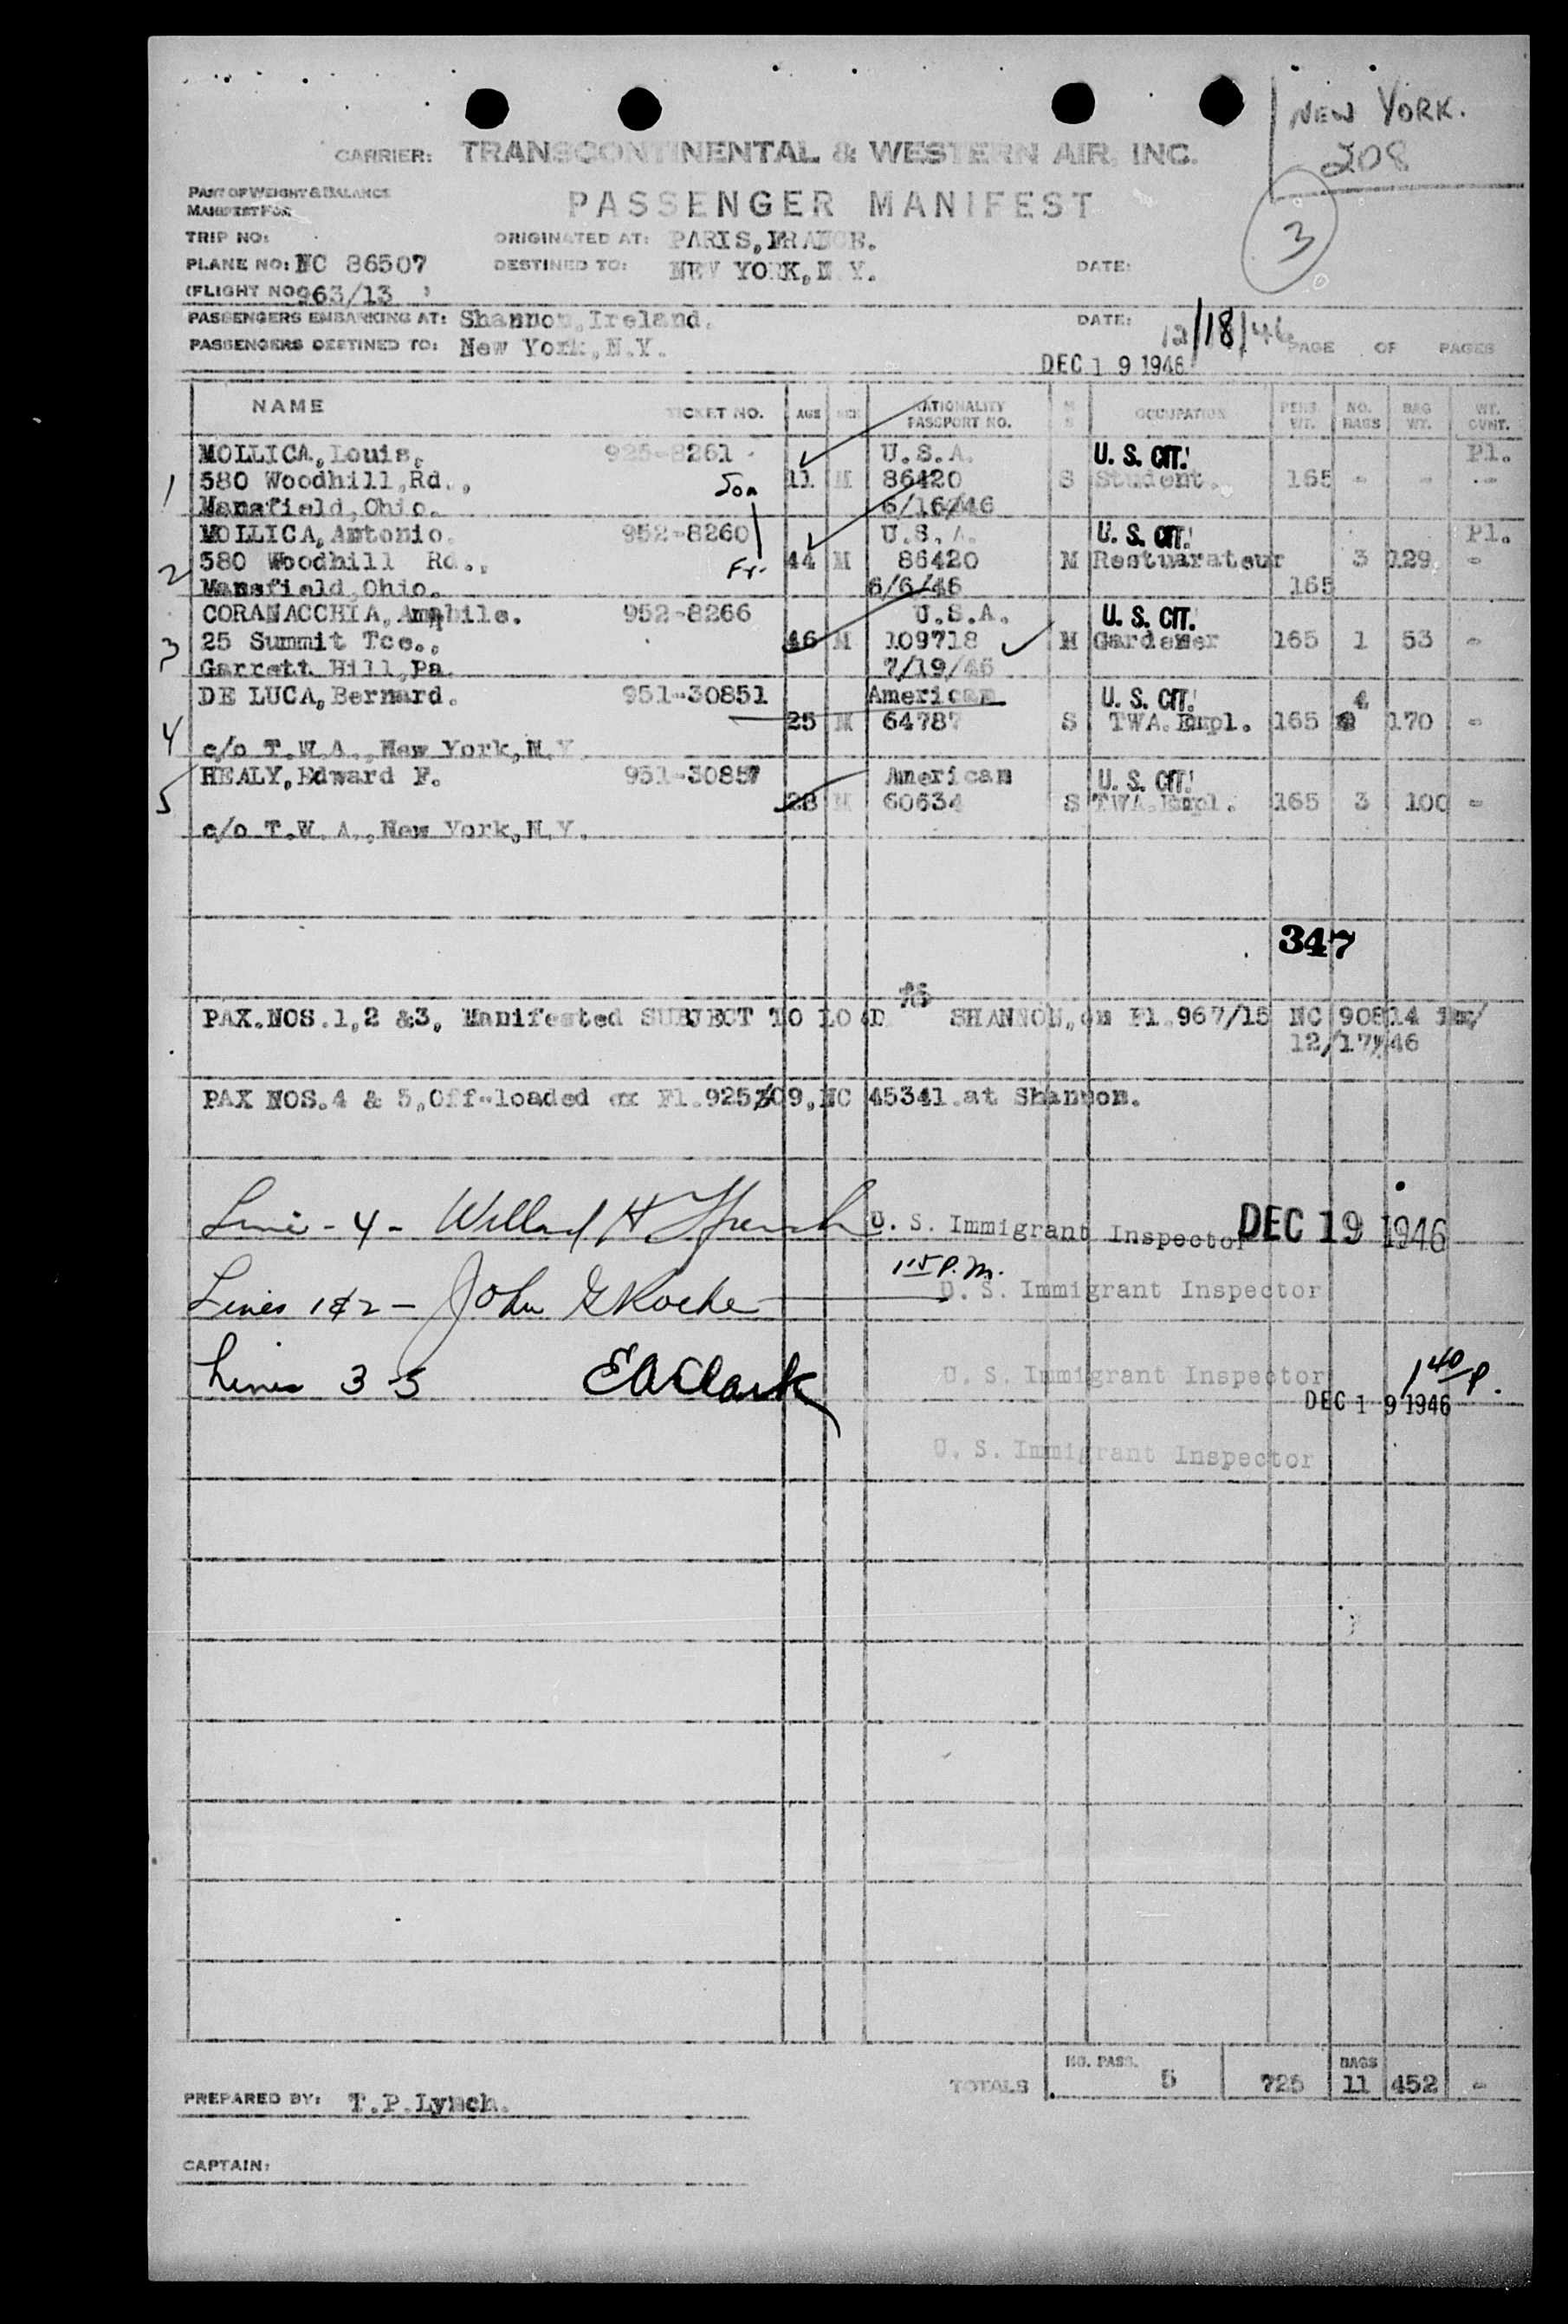 NEW YORK.
208
3
CARRIER: TRANSCONTINENTAL & WESTERN AIR, INC.
PART OF WEIGHT & BALANCE
MANIFEST FOR
PASSENGER MANIFEST
TRIP NO: ORIGINATED AT: PARIS, FRANCE.
PLANE NO: NC 86507 DESTINED TO: NEW YORK, N.Y. DATE:
(FLIGHT NO 963/13 )
PASSENGERS EMBARKING AT: Shannon, Ireland. DATE: 12/18/46
PASSENGERS DESTINED TO: New York, N.Y. PAGE OF PAGES
DEC 19 1946
NAME TICKET NO. AGE SEX NATIONALITY PASSPORT NO. M S OCCUPATION PERS. WT. NO. BAGS BAG WT. WT. CVNT.
MOLLICA, Louis, 925-8261 U.S.A. U. S. CIT. Pl.
1 580 Woodhill, Rd., Son 11 M 86420 S Student. 165 - - -
Mansfield, Ohio. 6/16/46
MOLLICA, Antonio. 952-8260 U.S.A. U. S. CIT. Pl.
2 580 Woodhill Rd., Fr. 44 M 86420 M Restuarateur 3 129 -
Mansfield, Ohio. 6/6/46 165
CORANACCHIA, Amabile. 952-8266 U.S.A. U. S. CIT.
3 25 Summit Tce., 46 M 109718 M Gardener 165 1 53 -
Garrett Hill, Pa. 7/19/46
DE LUCA, Bernard. 951-30851 American U. S. CIT.
4 25 M 64787 S TWA. Empl. 165 4 170 -
c/o T.W.A., New York, N.Y.
HEALY, Edward F. 951-30857 American U. S. CIT.
5 28 M 60634 S TWA. Empl. 165 3 100 -
c/o T.W.A., New York, N.Y.
347
PAX. NOS. 1, 2 & 3, Manifested SUBJECT TO LOAD SHANNON, on Fl. 967/15 NC 90814
12/17/46
PAX NOS. 4 & 5, Off-loaded ex Fl. 925/09, NC 45341 at Shannon.
Line - 4 - Willard H French U. S. Immigrant Inspector DEC 19 1946
1 15 P.M.
Lines 1 & 2 - John G Roche U. S. Immigrant Inspector
Lines 3 5 E A Clark U. S. Immigrant Inspector 1 40 P.
DEC 19 1946
U. S. Immigrant Inspector
TOTALS NO. PASS. 5 725 BAGS 11 452 -
PREPARED BY: T.P. Lynch.
CAPTAIN: